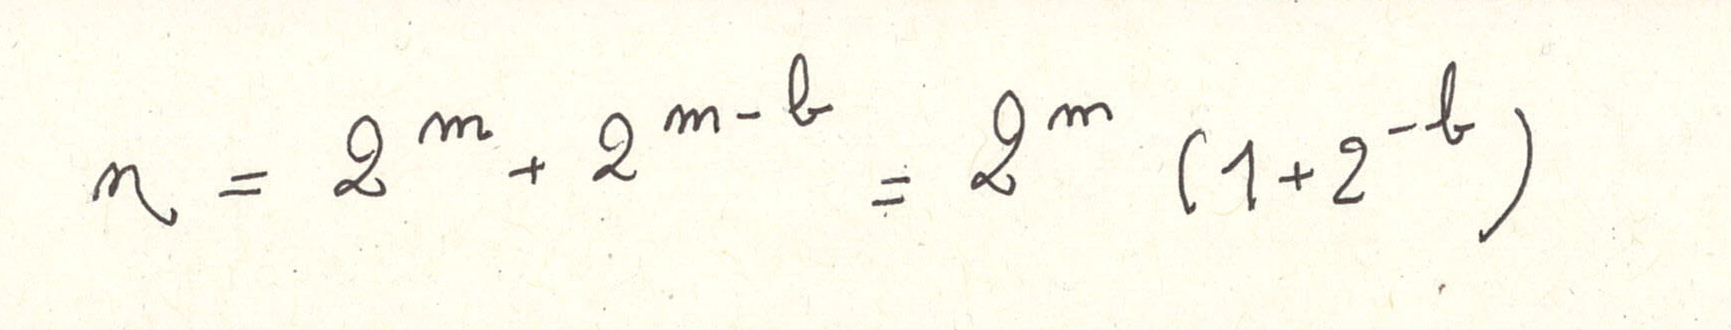 n = 2^m + 2^{m-b} = 2^m (1+2^{-b})